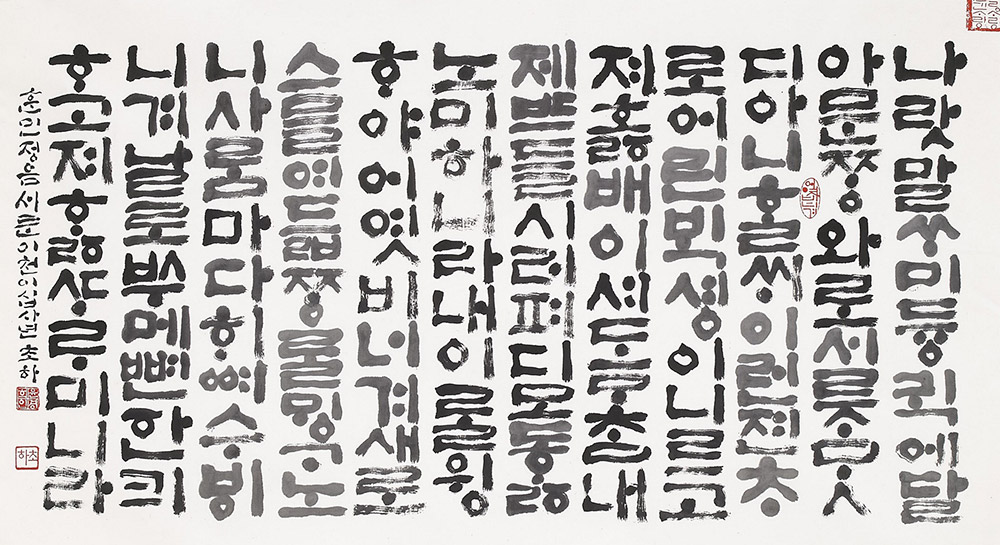 나랏말ᄊᆞ미듕귁에달
아문ᄍᆞᆼ와로서르ᄉᆞᄆᆞᆺ
디아니ᄒᆞᆯᄊᆡ이런젼ᄎᆞ
로어린ᄇᆡᆨ셩이니르고
져홇배이셔도ᄆᆞᄎᆞᆷ내
제ᄠᅳ들시러펴디몯ᄒᆞᇙ
노미하니라내이ᄅᆞᆯ윙
ᄒᆞ야어엿비너겨새로
스믈여듧ᄍᆞᆼᄅᆞᆯᄆᆡᇰᄀᆞ노
니사ᄅᆞᆷ마다ᄒᆡᅇᅧ수ᄫᅵ
니겨날로ᄡᅮ메뼌한킈
ᄒᆞ고져ᄒᆞᇙᄯᆞᄅᆞ미니라
훈민정음서문이천이십사년 초하
초하